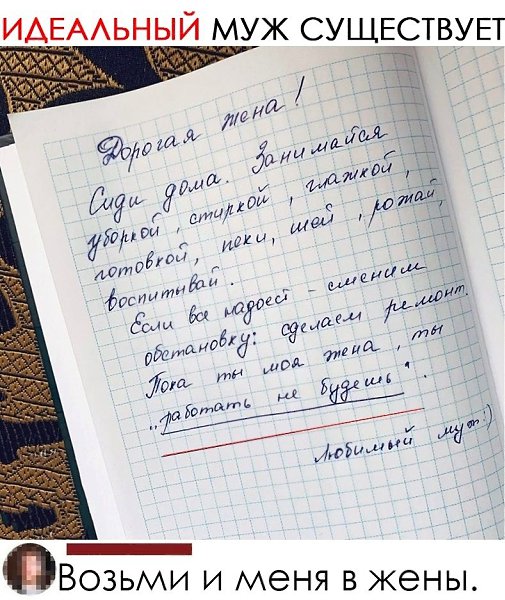 ИДЕАЛЬНЫЙ МУЖ СУЩЕСТВУЕТ
Дорогая жена!
Сиди дома. Занимайся
уборкой, стиркой, глажкой,
готовкой, пеки, шей, рожай,
воспитывай.
Если все надоест – сменим
обстановку: сделаем ремонт.
Пока ты моя жена, ты
„работать не будешь".
Любимый муж:)
Возьми и меня в жены.